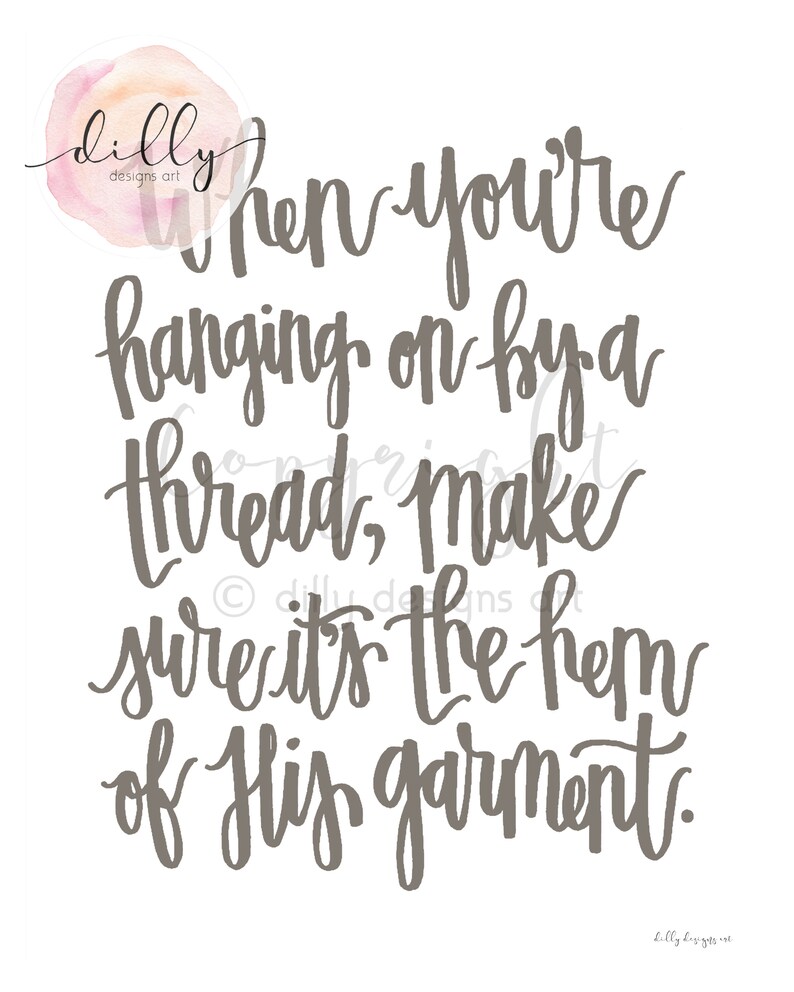 dilly
designs art
When you're
hanging on by a
thread, make
copyright
© dilly designs art
sure it's the hem
of His garment.
dilly designs art